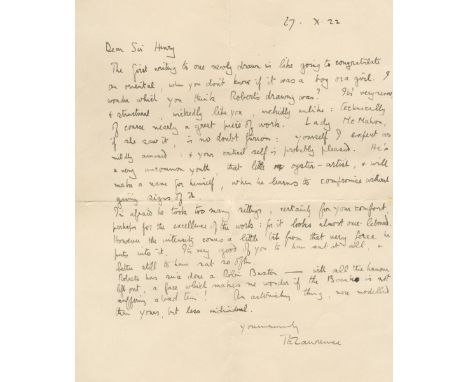 27. X. 22
Dear Sir Henry
The first writing to one newly drawn is like going to congratulate
an oriental, when you don't know if it was a boy or a girl. I
wonder which you think Roberts drawing was? Its very
& structural, wickedly like you, wickedly unlike: technically
of course nearly a great piece of work. Lady McMahon,
if she saw it, is no doubt furious: yourself I expect as
mildly amused: & your critical self is probably pleased. He's
a very uncommon youth that little oyster-artist, & will
make a name for himself, when he learns to compromise without
giving signs of it.
I'm afraid he took too many sittings, certainly for your comfort,
perhaps for the excellence of the works: for it looks almost over-laboured.
However the intensity comes a little bit from that very force he
puts into it. It's very good of you to have sat at all, &
better still to have sat so often.
Roberts has since done a Robin Buxton — with all the humour
left out, a face which makes me wonder if the Bank is not
suffering a bad time! An astonishing thing, more modelled
than yours, but less individual.
Yours sincerely
TELawrence